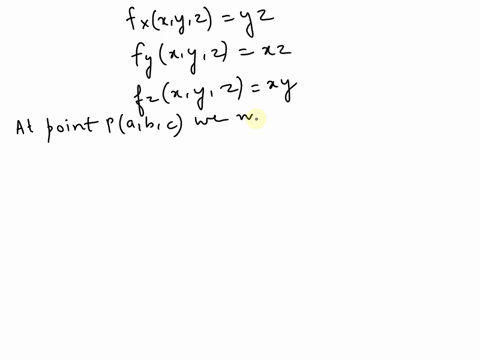 fx(x,y,z) = yz
fy(x,y,z) = xz
fz(x,y,z) = xy
At point P(a,b,c) we